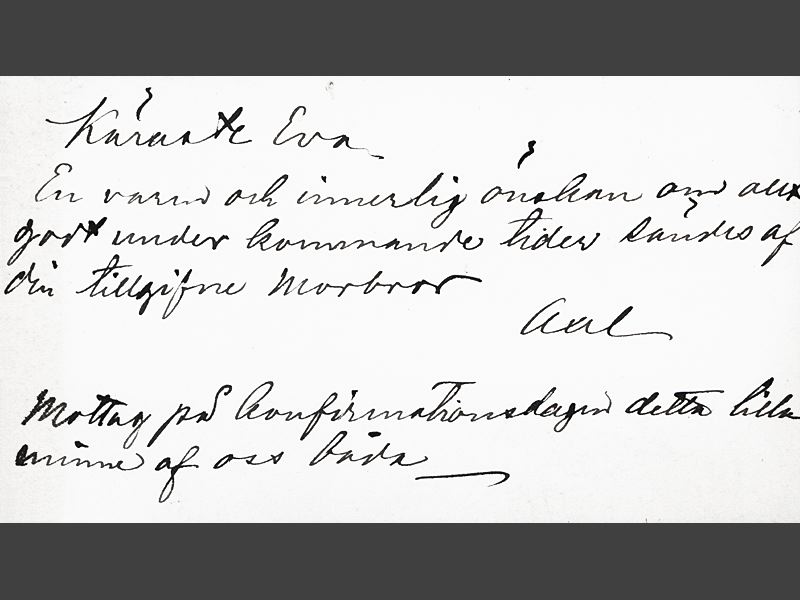 Käraste Eva
En varm och innerlig önskan om allt
godt under kommande tider sändes af
din tillgifne Morbror
Axel
Mottag på konfirmationsdagen detta lilla
minne af oss båda